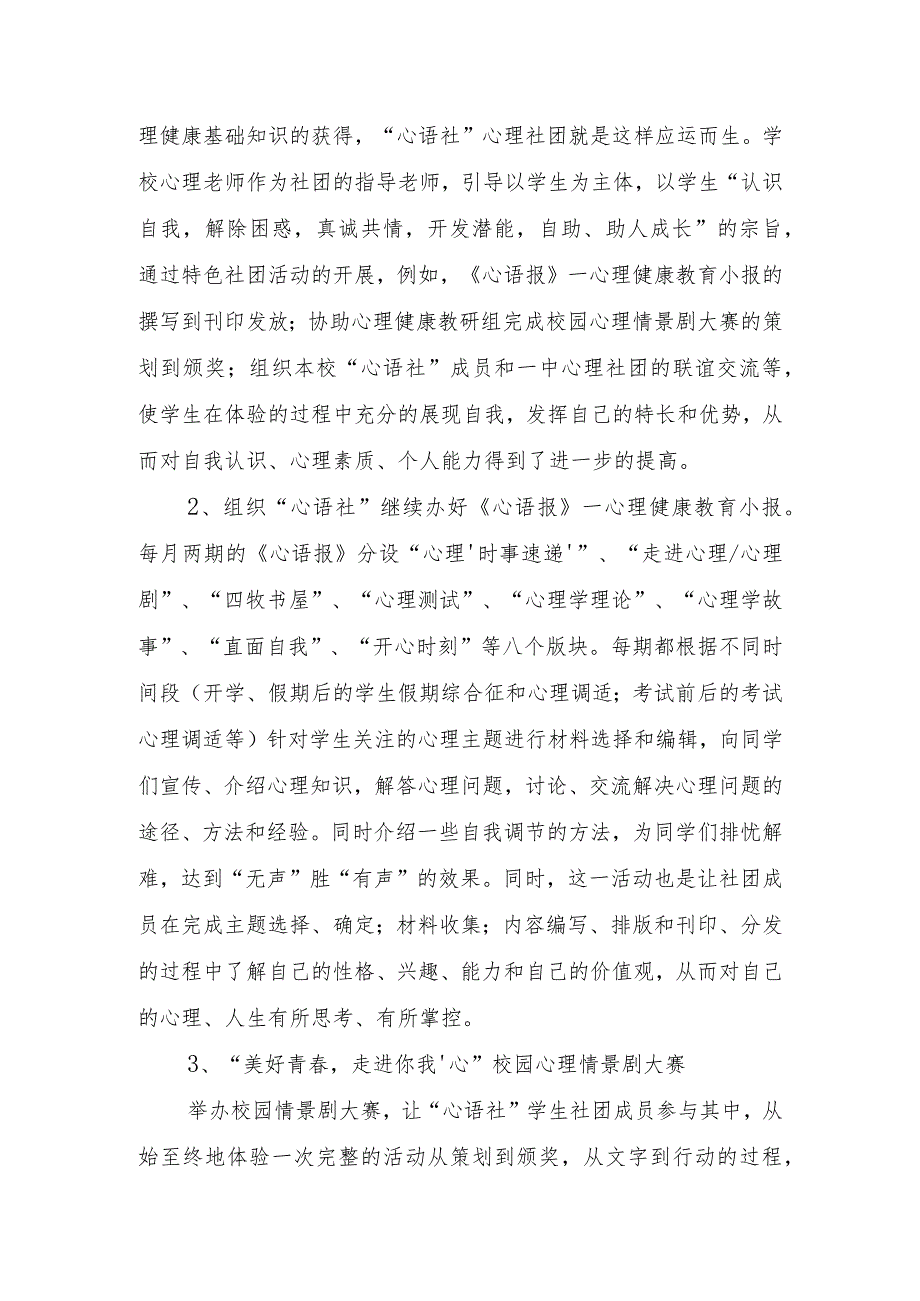 理健康基础知识的获得，“心语社”心理社团就是这样应运而生。学
校心理老师作为社团的指导老师，引导以学生为主体，以学生“认识
自我，解除困惑，真诚共情，开发潜能，自助、助人成长”的宗旨，
通过特色社团活动的开展，例如，《心语报》一心理健康教育小报的
撰写到刊印发放；协助心理健康教研组完成校园心理情景剧大赛的策
划到颁奖；组织本校“心语社”成员和一中心理社团的联谊交流等，
使学生在体验的过程中充分的展现自我，发挥自己的特长和优势，从
而对自我认识、心理素质、个人能力得到了进一步的提高。
2、组织“心语社”继续办好《心语报》一心理健康教育小报。
每月两期的《心语报》分设“心理'时事速递'”、“走进心理/心理
剧”、“四牧书屋”、“心理测试”、“心理学理论”、“心理学故
事”、“直面自我”、“开心时刻”等八个版块。每期都根据不同时
间段（开学、假期后的学生假期综合征和心理调适；考试前后的考试
心理调适等）针对学生关注的心理主题进行材料选择和编辑，向同学
们宣传、介绍心理知识，解答心理问题，讨论、交流解决心理问题的
途径、方法和经验。同时介绍一些自我调节的方法，为同学们排忧解
难，达到“无声”胜“有声”的效果。同时，这一活动也是让社团成
员在完成主题选择、确定；材料收集；内容编写、排版和刊印、分发
的过程中了解自己的性格、兴趣、能力和自己的价值观，从而对自己
的心理、人生有所思考、有所掌控。
3、“美好青春，走进你我'心”校园心理情景剧大赛
举办校园情景剧大赛，让“心语社”学生社团成员参与其中，从
始至终地体验一次完整的活动从策划到颁奖，从文字到行动的过程，